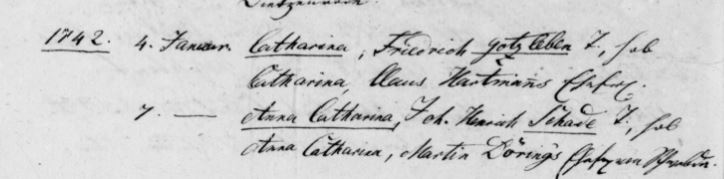 1742. 4. Januar. Catharina, Friedrich Gotzleben T., hob
Catharina, Claus Hartmanns Ehefr.
7. — Anna Catharina, Joh. Henrich Schade T., hob
Anna Catharina, Martin Dörings